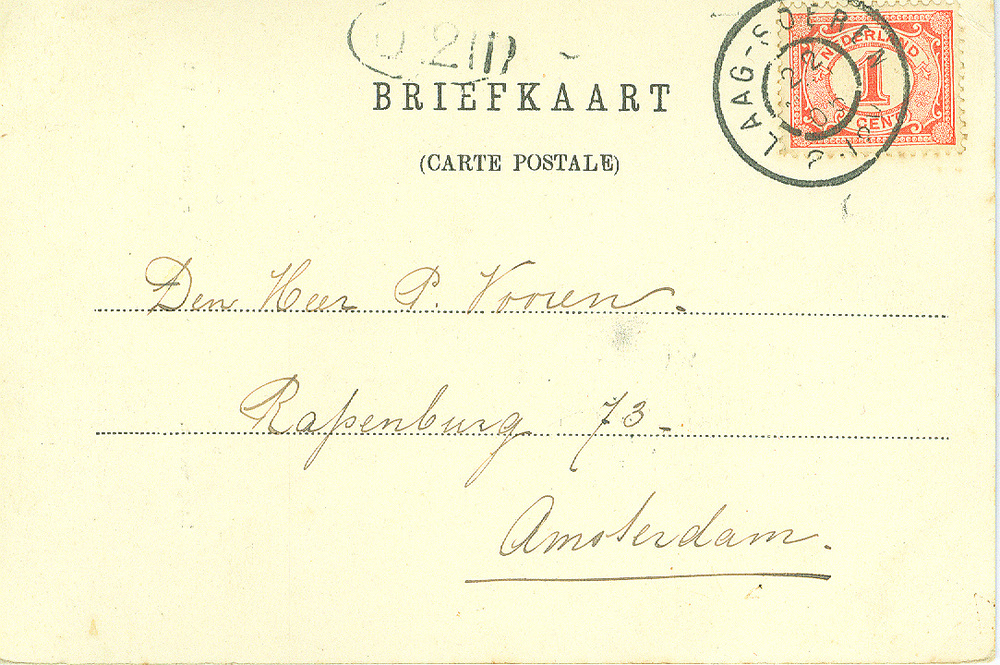 BRIEFKAART
(CARTE POSTALE)
LAAG-SOEREN
NEDERLAND
1
CENT
Den Heer P. Vooren.
Rapenburg 73-
Amsterdam.